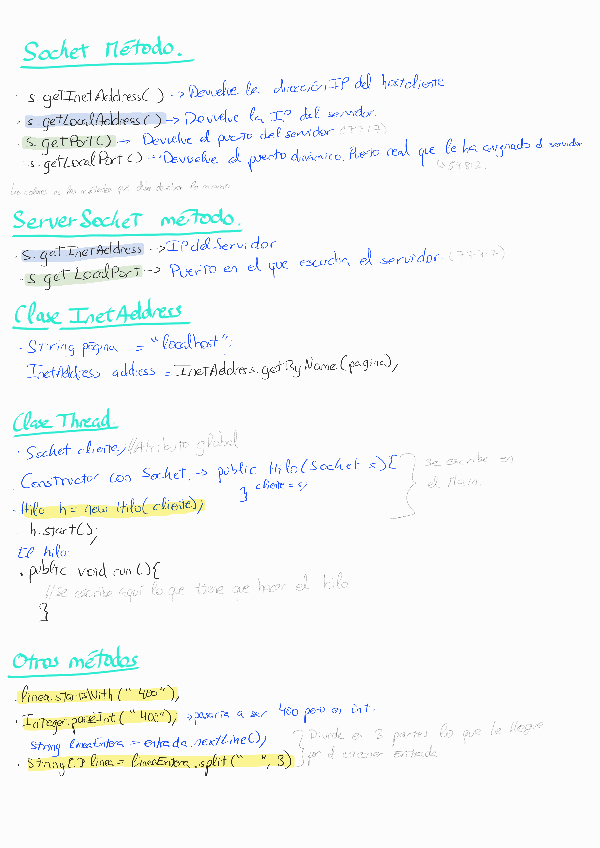 Socket Método.
· s getInetAddress() -> Devuelve la dirección IP del host cliente
· s getLocalAddress() -> Devuelve la IP del servidor.
· s. getPort() -> Devuelve el puerto del servidor (7777)
· s. getLocalPort() -> Devuelve el puerto dinámico. Puerto real que le ha asignado el servidor
↳ 54812.
Los colores es los métodos que
ServerSocket método.
· s. getInetAddress -> IP del Servidor
· s getLocalPort -> Puerto en el que escucha el servidor (7777)
Clase InetAddress
· String pagina = "localhost";
InetAddress address = InetAddress.getByName(pagina);
Clase Thread
· Socket cliente; //Atributo global
· Constructor con Socket. -> public Hilo(Socket s){
cliente = s;
}
se escribe en
el Main.
· Hilo h = new Hilo(cliente);
h.start();
El hilo
· public void run(){
//Se escribe aquí lo que tiene que hacer el hilo
}
Otros métodos
· linea.startsWith("400");
· Integer.parseInt("400"); -> pasaría a ser 400 pero es int.
String lineaEntera = entrada.nextLine();
· String[] linea = lineaEntera.split(" ", 3)
Divide en 3 partes lo que le llegue
por el scanner entrada